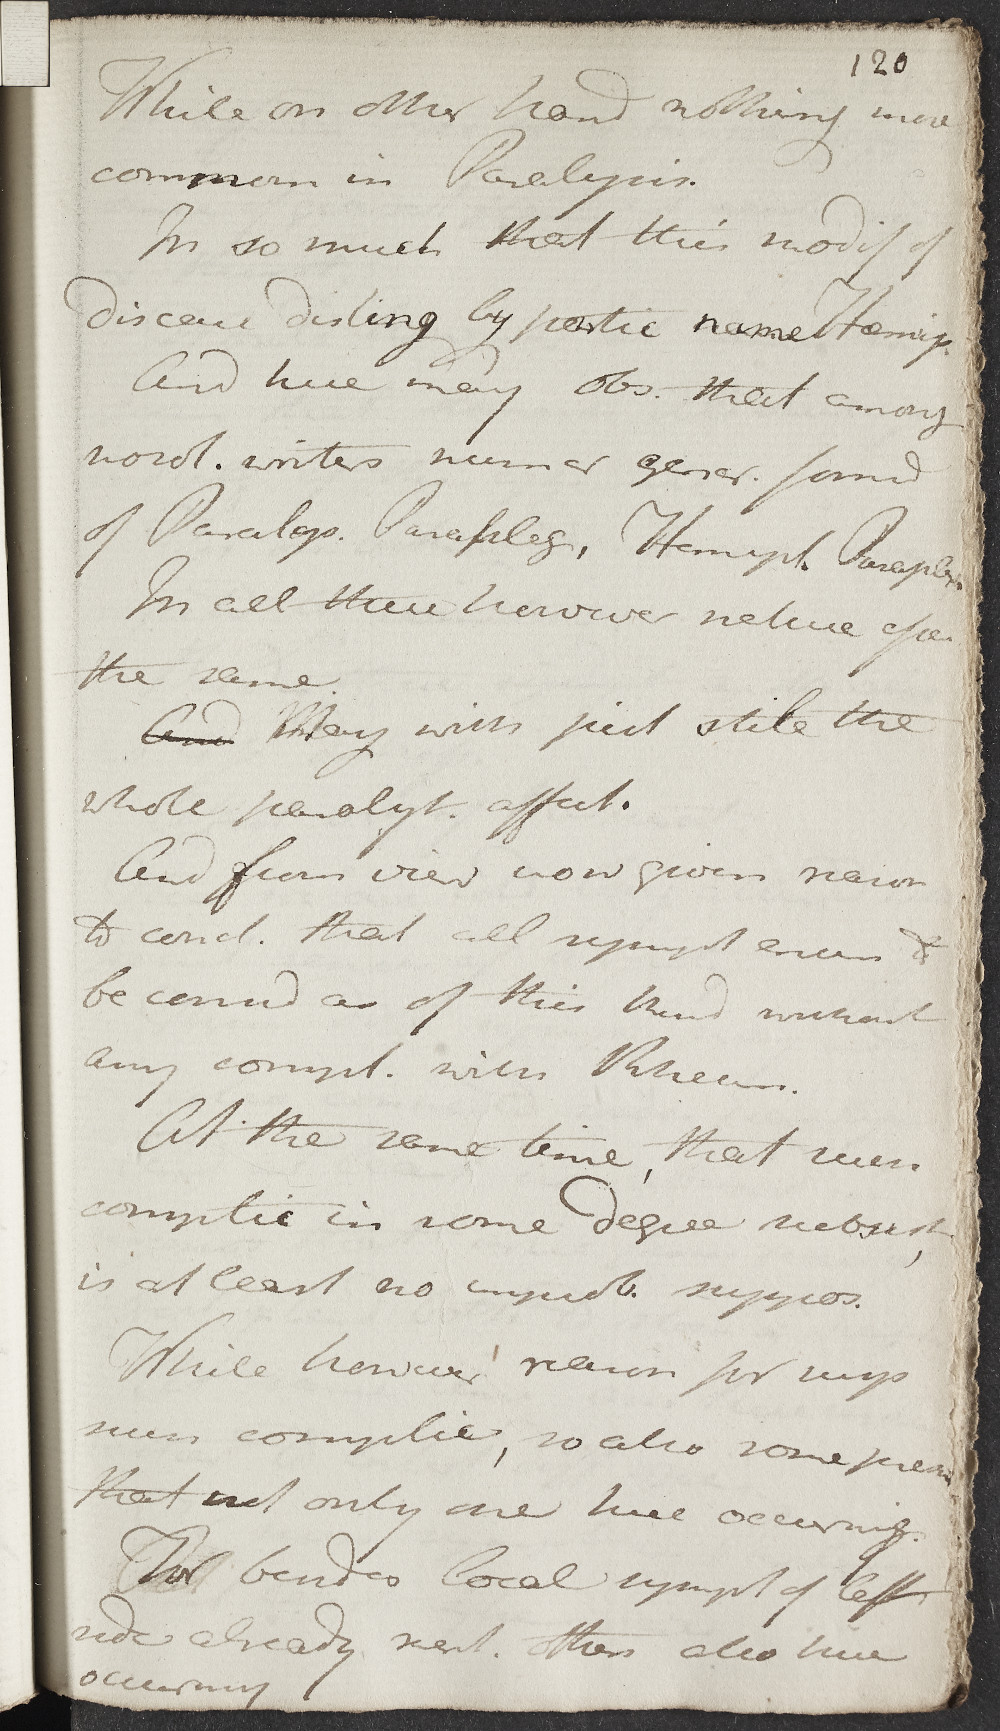 120
While on other hand nothing more
common in Paralysis.
In so much that this modif of
disease disting by partic name Hemip.
And here may obs. that among
nosol. writers numer gener. found
of Paralys. Parapleg, Hemipl. Paraplex.
In all these however nature
the same.
And May with just stile the
whole paralyt. affect.
And from view now given reason
to concl. that all sympt enum to
be consid as of this kind without
any compl. with Rheum.
At the same time, that such
complic in some degree subsist,
is at least no improb. suppos.
While however reason for susp
such complic, so also some presum
that not only one here occurring.
For besides local sympt of left
side already ment. others also here
occurring